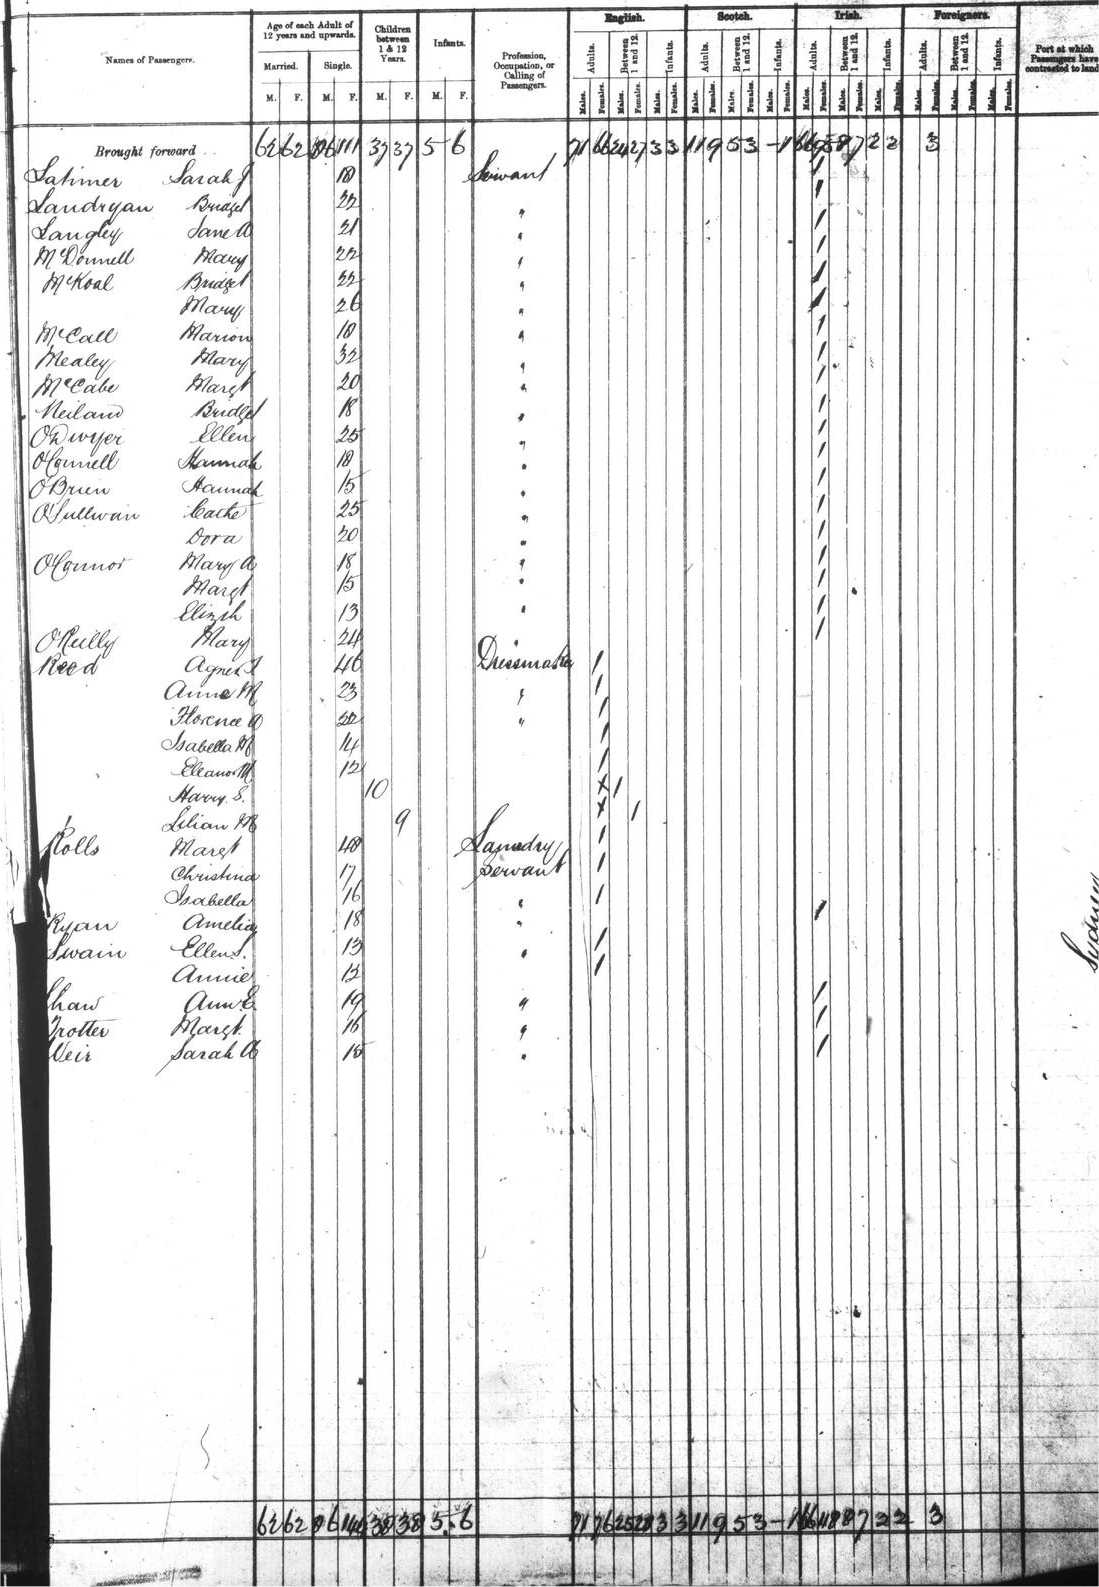 Names of Passengers.
Age of each Adult of 12 years and upwards.
Married. Single.
M. F. M. F.
Children between 1 & 12 Years.
M. F.
Infants.
M. F.
Profession, Occupation, or Calling of Passengers.
English. Scotch. Irish. Foreigners.
Adults. Between 1 and 12. Infants. Adults. Between 1 and 12. Infants. Adults. Between 1 and 12. Infants. Adults. Between 1 and 12. Infants.
Males. Females. Males. Females. Males. Females. Males. Females. Males. Females. Males. Females. Males. Females. Males. Females. Males. Females. Males. Females. Males. Females. Males. Females.
Port at which Passengers have contracted to land
Brought forward 62 62 111 37 37 5 6 71 66 24 27 3 3 11 9 5 3 - 1 66 8 7 2 2 3
Latimer Sarah J 18 Servant
Landryan Bridget 22 "
Langley Jane A 21 "
McDonnell Mary 22 "
McKoal Bridget 22 "
Mary 26 "
McCall Marion 18 "
Mealey Mary 32 "
McCabe Margt 20 "
Neiland Bridget 18 "
O'Dwyer Ellen 25 "
O'Connell Hannah 18 "
O'Brien Hannah 15 "
O'Sullivan Cathe 25 "
Dora 20 "
O'Connor Mary A 18 "
Margt 15 "
Elizth 13 "
O'Reilly Mary 24 "
Reed Agnes J 46 Dressmaker 1
Annie M 23 " 1
Florence A 22 " 1
Isabella M 14 1
Eleanor M 12 1
Harry S. 10 x 1
Lilian M 9 x 1
Rolls Margt 48 Laundry 1
Christina 17 Servant 1
Isabella 16 " 1
Ryan Amelia 18 " 1
Swain Ellen S. 13 " 1
Annie 12 1
Shaw Ann E 19 " 1
Trotter Margt. 16 " 1
Weir Sarah A 15 " 1
Sydney
62 62 38 38 5 6 71 76 25 28 3 3 11 9 5 3 - 1 66 8 7 2 2 3